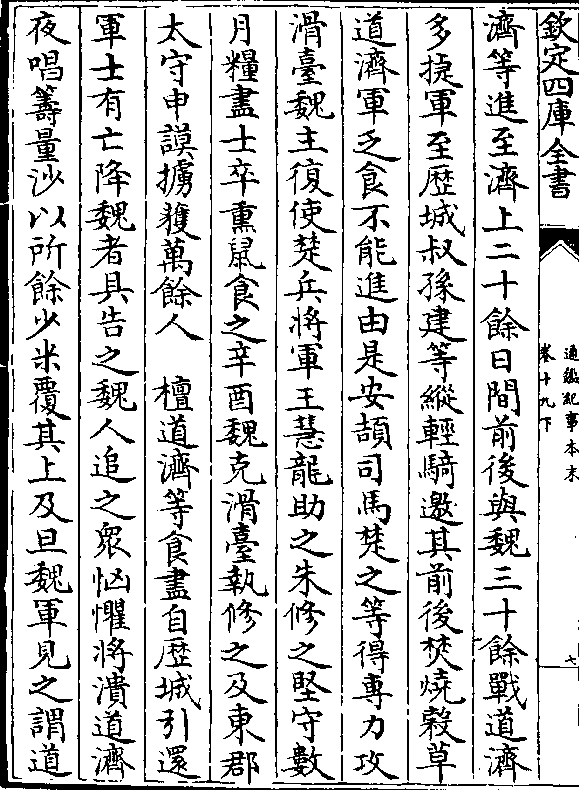 欽定四庫全書
通鑑紀事本末
卷十九下
七
濟等進至濟上二十餘日間前後與魏三十餘戰道濟
多捷軍至歷城叔孫建等縱輕騎邀其前後焚燒穀草
道濟軍乏食不能進由是安頡司馬楚之等得專力攻
滑臺魏主復使楚兵將軍王慧龍助之朱修之堅守數
月糧盡士卒熏鼠食之辛酉魏克滑臺執修之及東郡
太守申謨擄獲萬餘人　檀道濟等食盡自歷城引還
軍士有亡降魏者具告之魏人追之衆忷懼將潰道濟
夜唱籌量沙以所餘少米覆其上及旦魏軍見之謂道